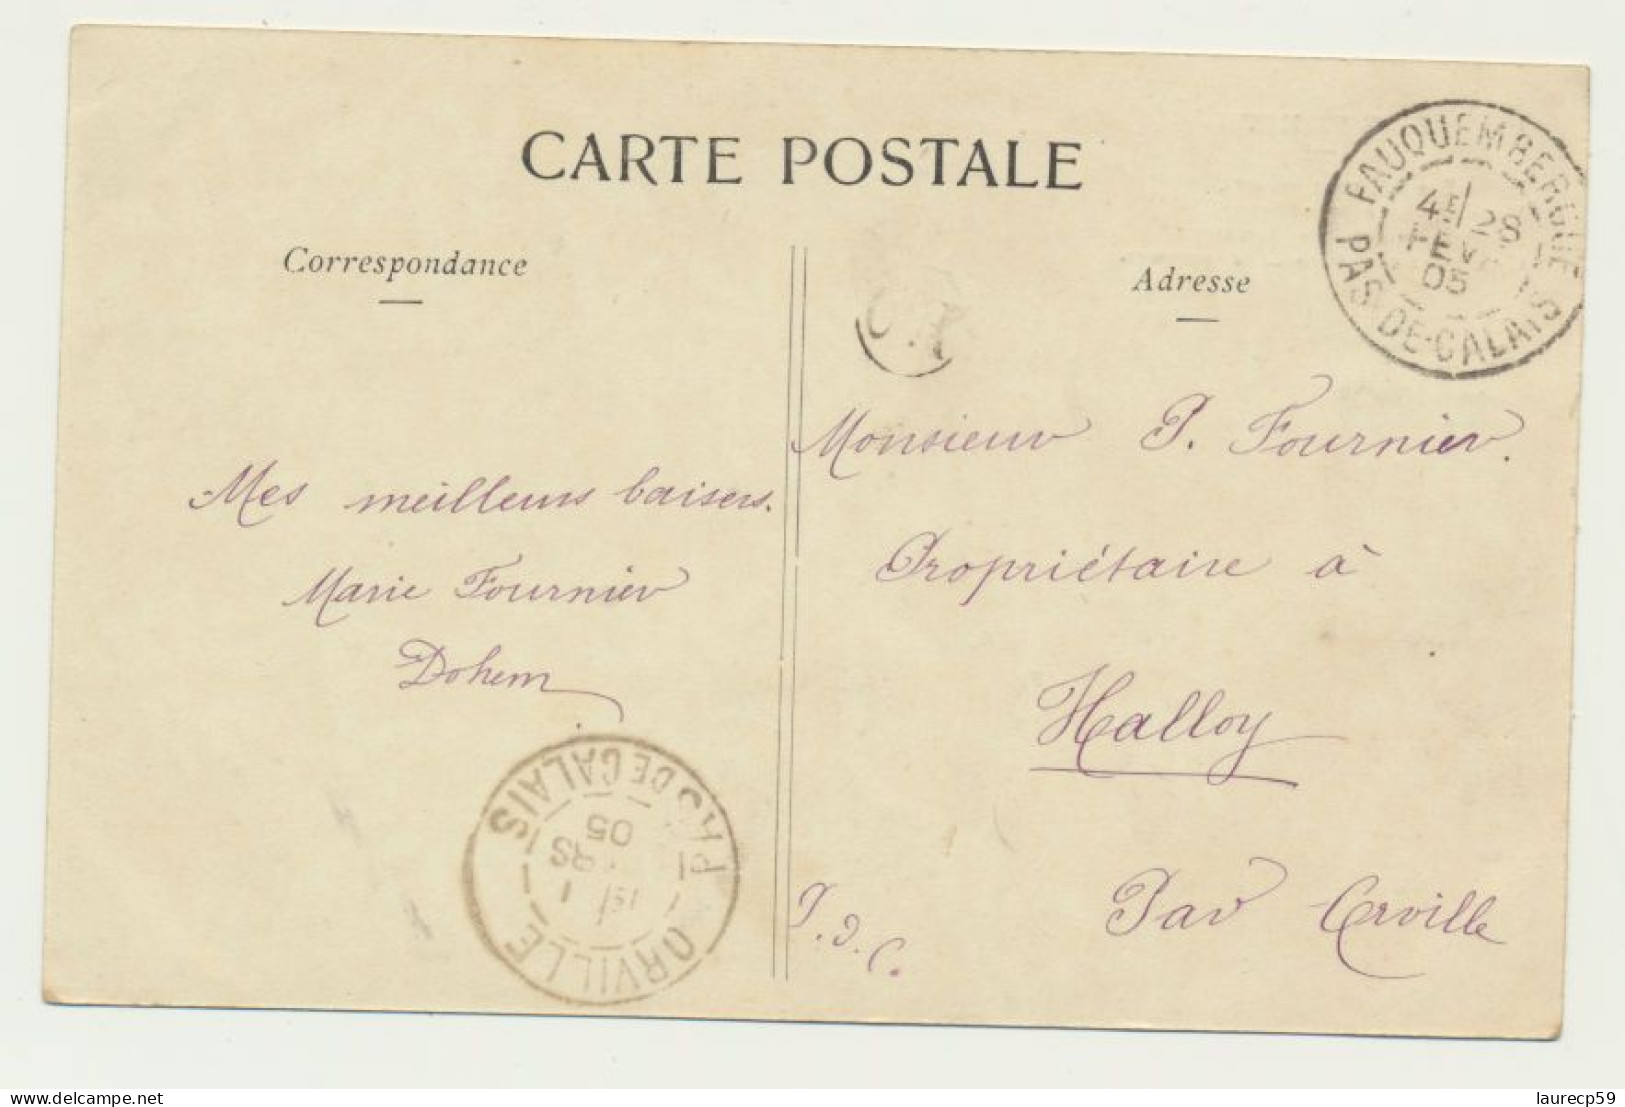 CARTE POSTALE
Correspondance
Adresse
FAUQUEMBERGUE
4E/28
FEV
05
PAS-DE-CALAIS
Monsieur P. Fournier.
Propriétaire à
Halloy
Par Orville
P. d. C.
Mes meilleurs baisers.
Marie Fournier
Dohem
PAS DE CALAIS
05
RS
15/ 1
ORVILLE
Delcampe.net
laurecp59